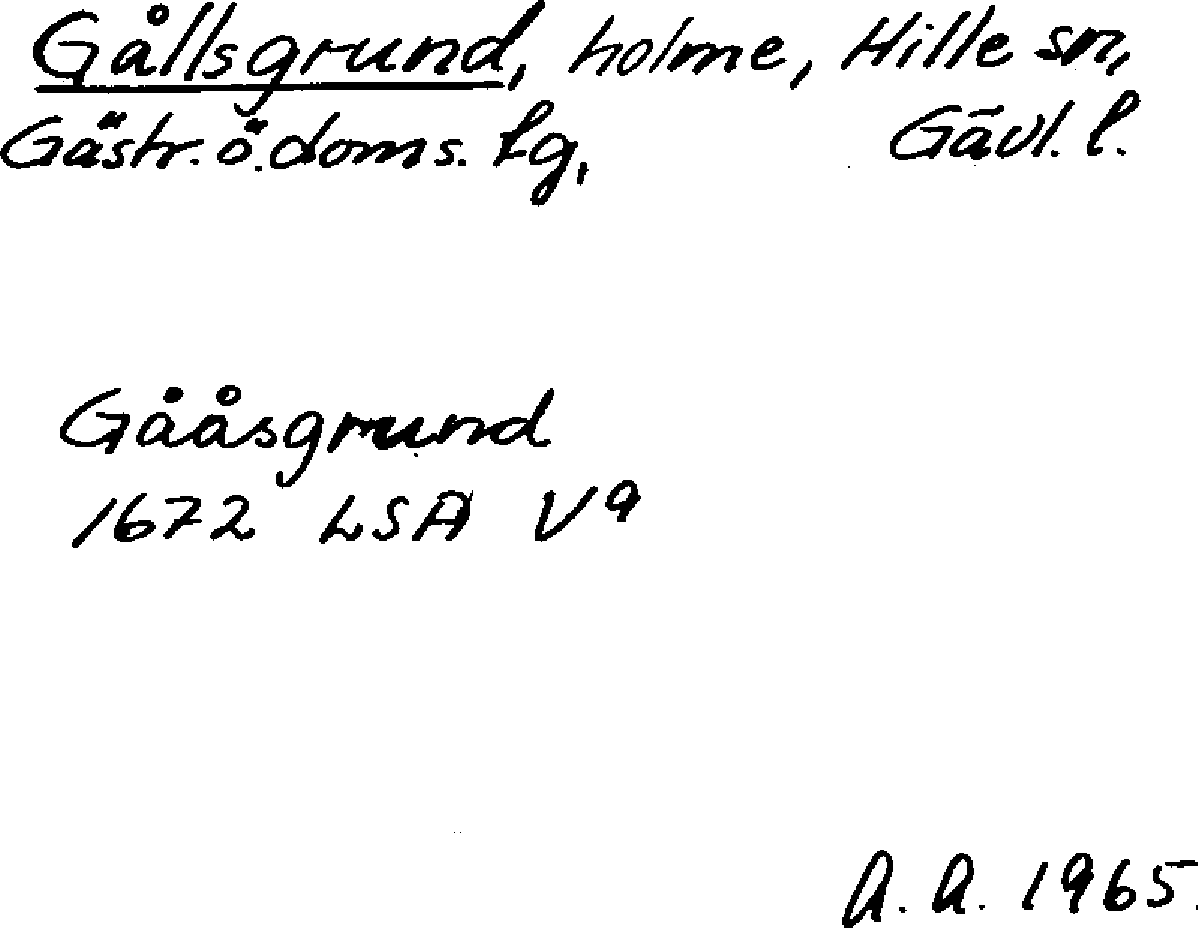 Gållsgrund, holme, Hille sn,
Gästr. ö. doms. tg, Gävl. l.
Gååsgrund
1672 LSA V9
A. A. 1965.